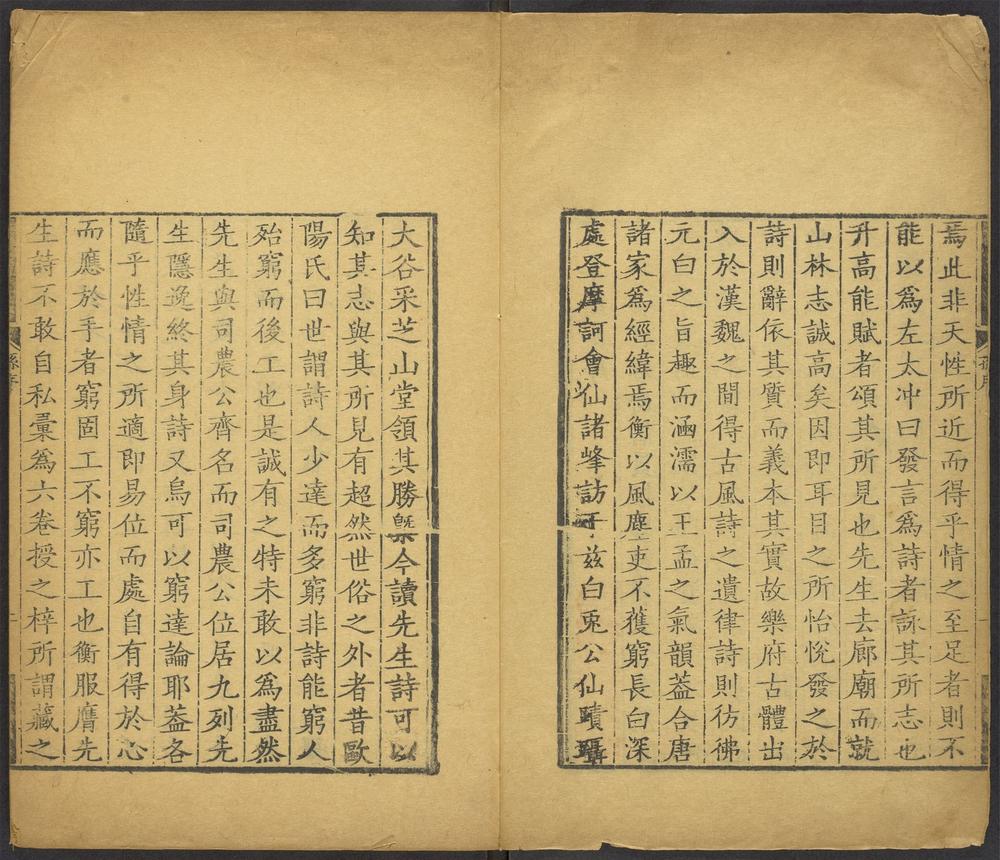 焉此非天性所近而得乎情之至足者則不
能以爲左太冲曰發言爲詩者詠其所志也
升高能賦者頌其所見也先生去廊廟而就
山林志誠高矣因即耳目之所怡悅發之於
詩則辭依其質而義本其實故樂府古體出
入於漢魏之間得古風詩之遺律詩則彷彿
元白之旨趣而涵濡以王孟之氣韻葢合唐
諸家爲經緯焉衡以風塵吏不獲窮長白深
處登摩訶會仙諸峰訪于兹白兎公仙蹟瑻
大谷采芝山堂領其勝槩今讀先生詩可以
知其志與其所見有超然世俗之外者昔歐
陽氏曰世謂詩人少達而多窮非詩能窮人
殆窮而後工也是誠有之特未敢以爲盡然
先生與司農公齊名而司農公位居九列先
生隱逸終其身詩又烏可以窮達論耶葢各
隨乎性情之所適即易位而處自有得於心
而應於手者窮固工不窮亦工也衡服膺先
生詩不敢自私彚爲六卷授之梓所謂藏之
孫序